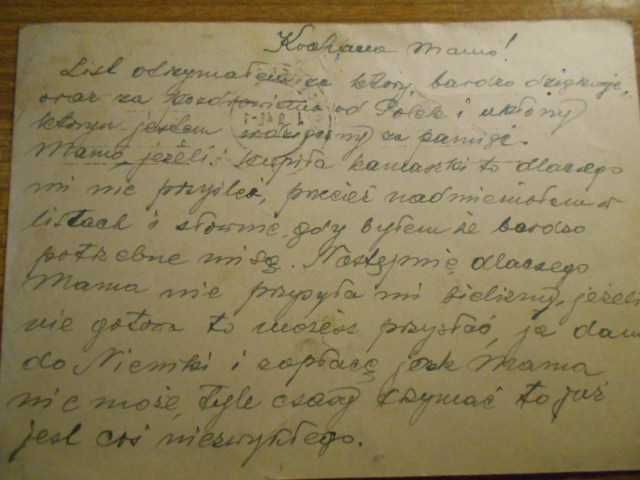 Kochana Mamo!
List otrzymałem za który, bardzo dziękuję,
oraz za pozdrowienia od Polek i ukłony
którym jestem za pamięć.
Mamo, jeżeli kupiła kamaszki to dlaczego
mi nie przyśle, przecież nadmieniałem w
listach i słownie, gdy byłem że bardzo
potrzebne mi są. Następnie dlaczego
Mama nie przysyła mi bielizny, jeżeli
nie gotowa to możesz przysłać, ja dam
do Niemki i zapłacę jak Mama
nie może, tyle czasu trzymać to już
jest coś niezwykłego.